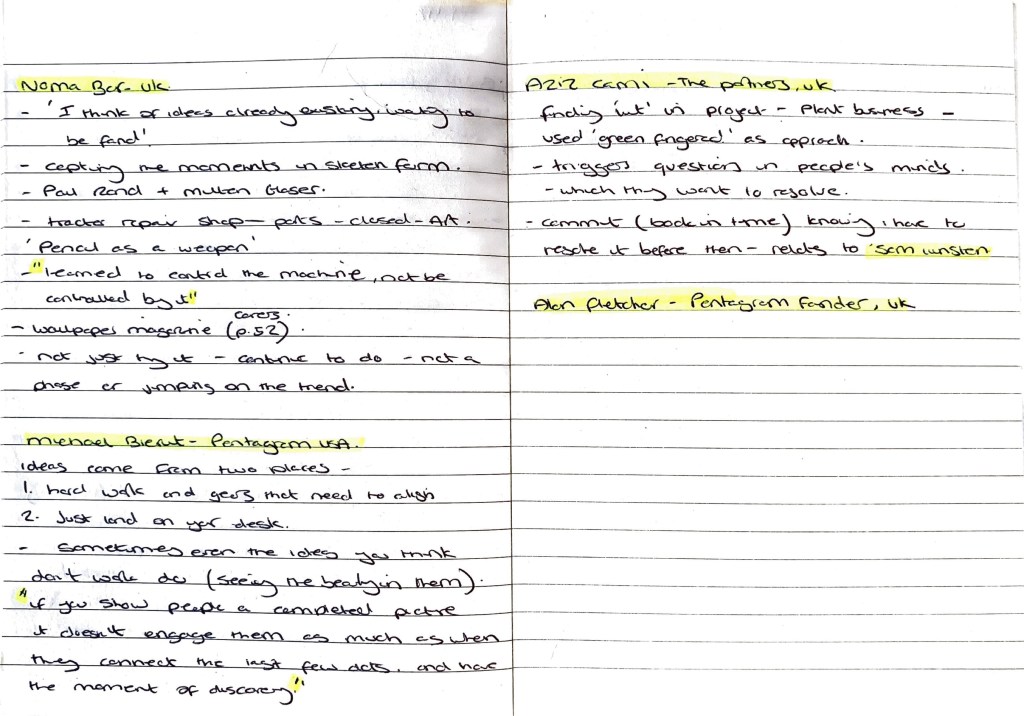 Noma Bar - UK.
- 'I think of ideas already existing, waiting to
be found'
- capturing the moments in sketch form.
- Paul Rand + Milton Glaser.
- tractor repair shop - parts - closed - Art.
'Pencil as a weapon'
- "learned to control the machine, not be
controlled by it"
- wallpaper magazine (p.52).
covers.
- not just try it - continue to do - not a
phase or jumping on the trend.
Michael Bierut - Pentagram USA.
ideas come from two places -
1. hard work and gears that need to align
2. Just land on your desk.
- Sometimes even the ideas you think
don't work do (seeing the beauty in them).
"if you show people a completed picture
it doesn't engage them as much as when
they connect the last few dots. and have
the moment of discovery."
Aziz Cami - The partners, UK
finding 'wit' in project - Plant business -
used 'green fingered' as approach.
- triggers questions in people's minds.
- which they want to resolve.
- commit (book in time) knowing i have to
resolve it before then - relates to
Alan Fletcher - Pentagram Founder, UK